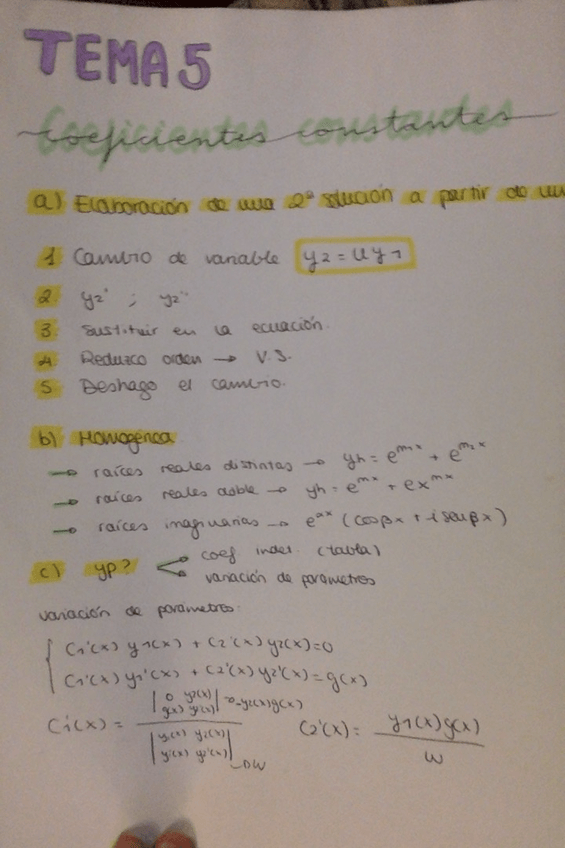 TEMA 5
Coeficientes constantes
a) Elaboración de una 2ª solución a partir de un
1 Cambio de variable y2 = u y1
2 y2' ; y2''
3 Sustituir en la ecuación.
4 Reduzco orden → V.S.
5 Deshago el cambio.
b) Homogénea
→ raíces reales distintas → yh = e^{m1x} + e^{m2x}
→ raíces reales doble → yh = e^{mx} + ex^{mx}
→ raíces imaginarias → e^{αx} (cosβx + i senβx)
c) yp? coef indet. (tabla)
variación de parámetros
variación de parámetros:
C1'(x) y1(x) + C2'(x) y2(x) = 0
C1'(x) y1'(x) + C2'(x) y2'(x) = g(x)
|0 y2(x)| → -y2(x)g(x)
|g(x) y2'(x)|
C1'(x) = C2'(x) = y1(x)g(x)
|y1(x) y2(x)| W
|y1'(x) y2'(x)| → W